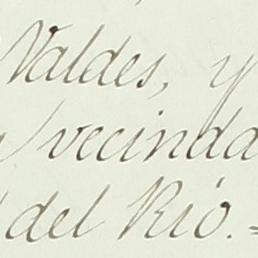 Valdes, y
vecinda
del Rio.=